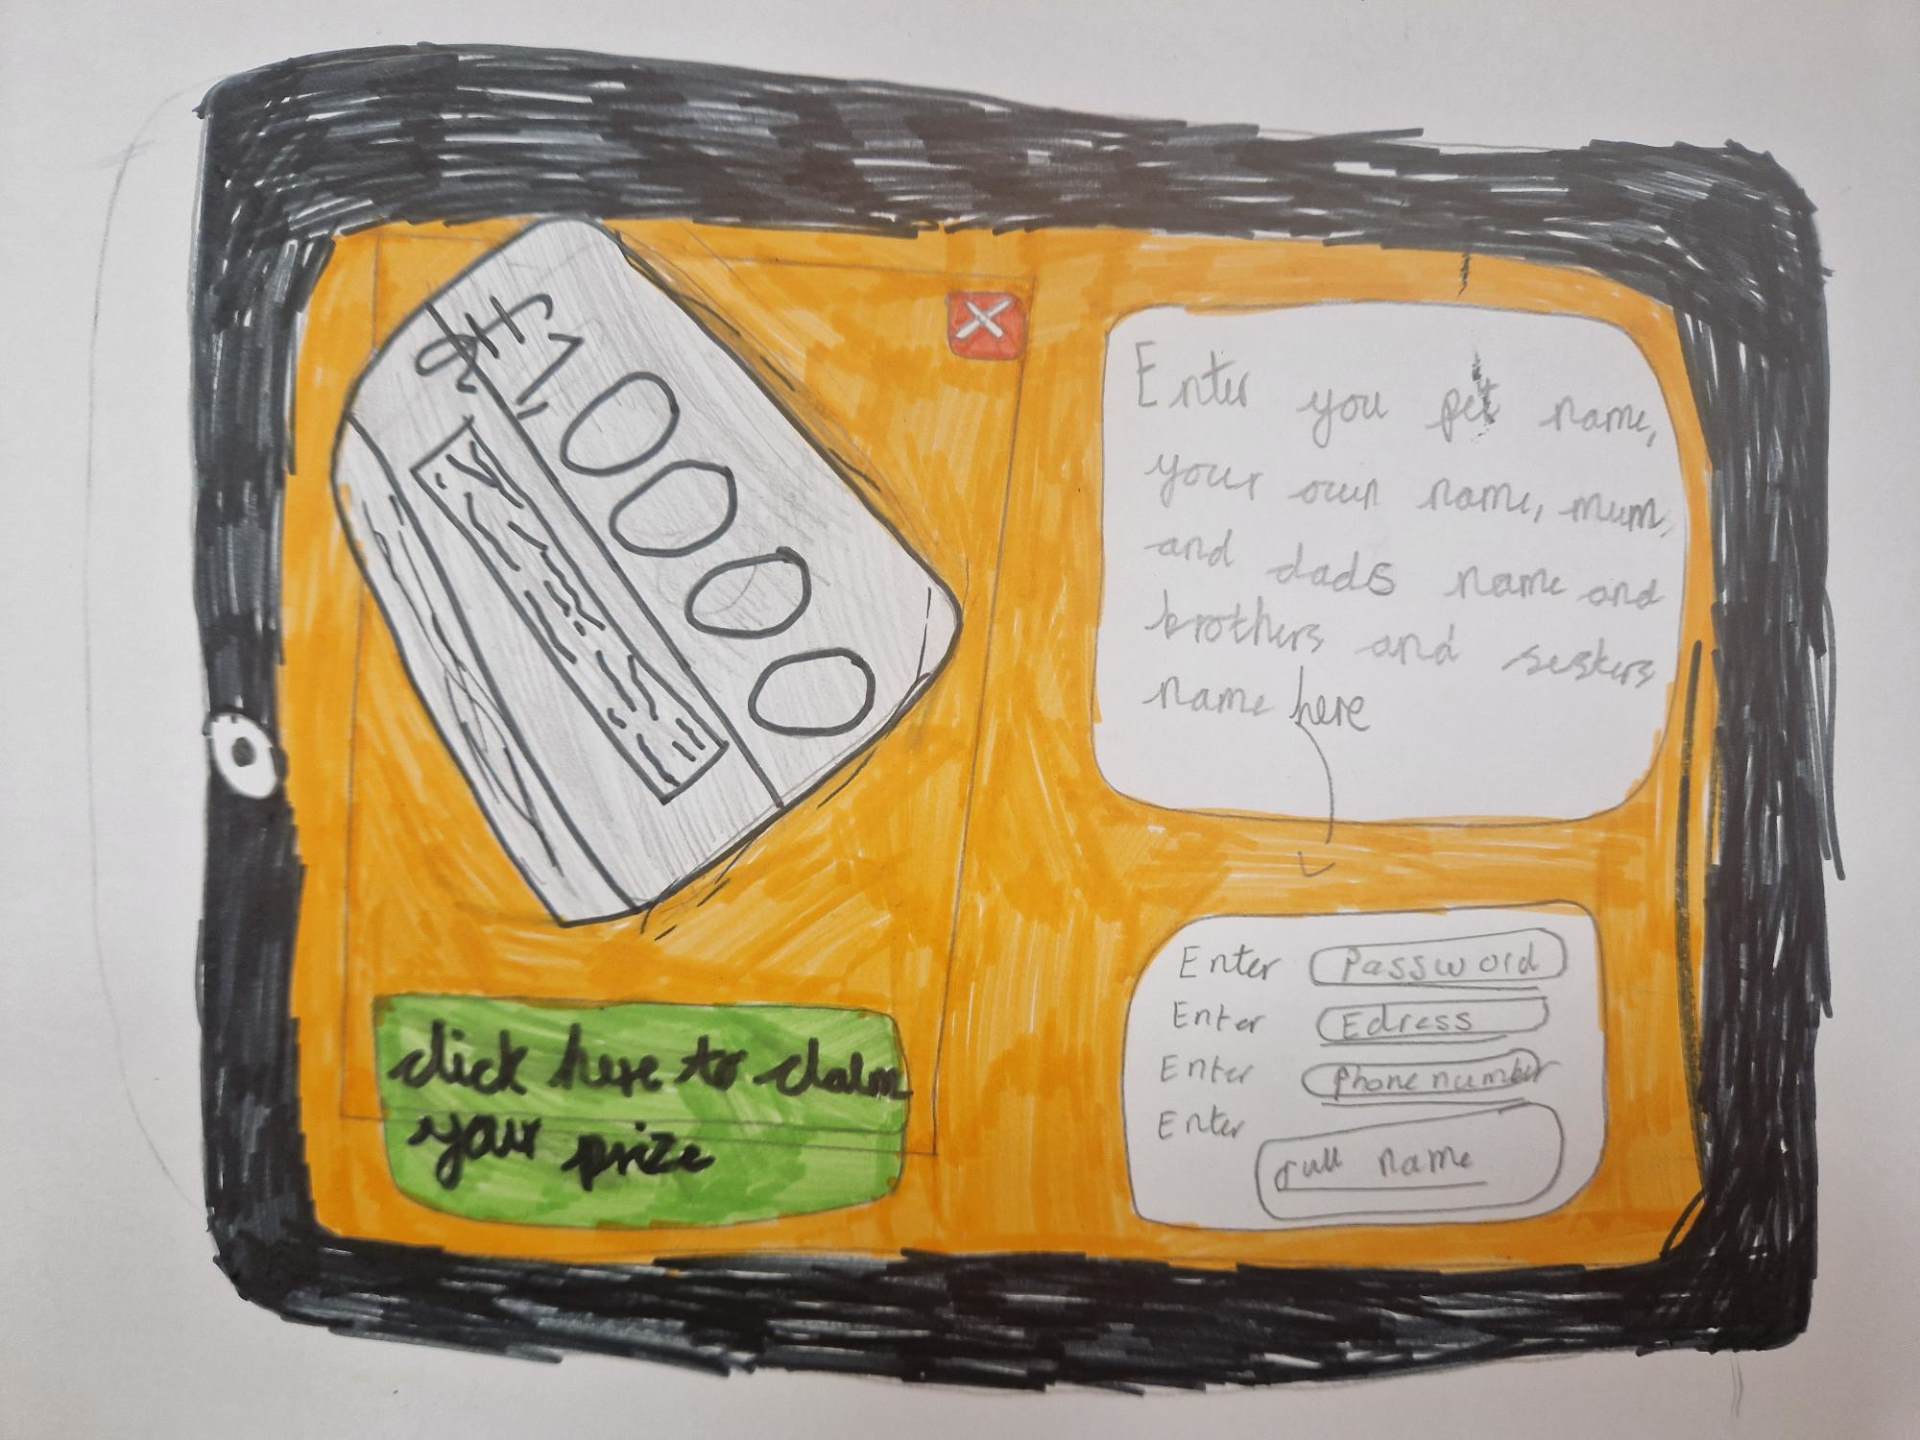 £1,0000
click here to claim
your prize
Enter you pet name,
your own name, mum,
and dads name and
brothers and sesters
name here
Enter Password
Enter Edress
Enter Phone number
Enter
full name